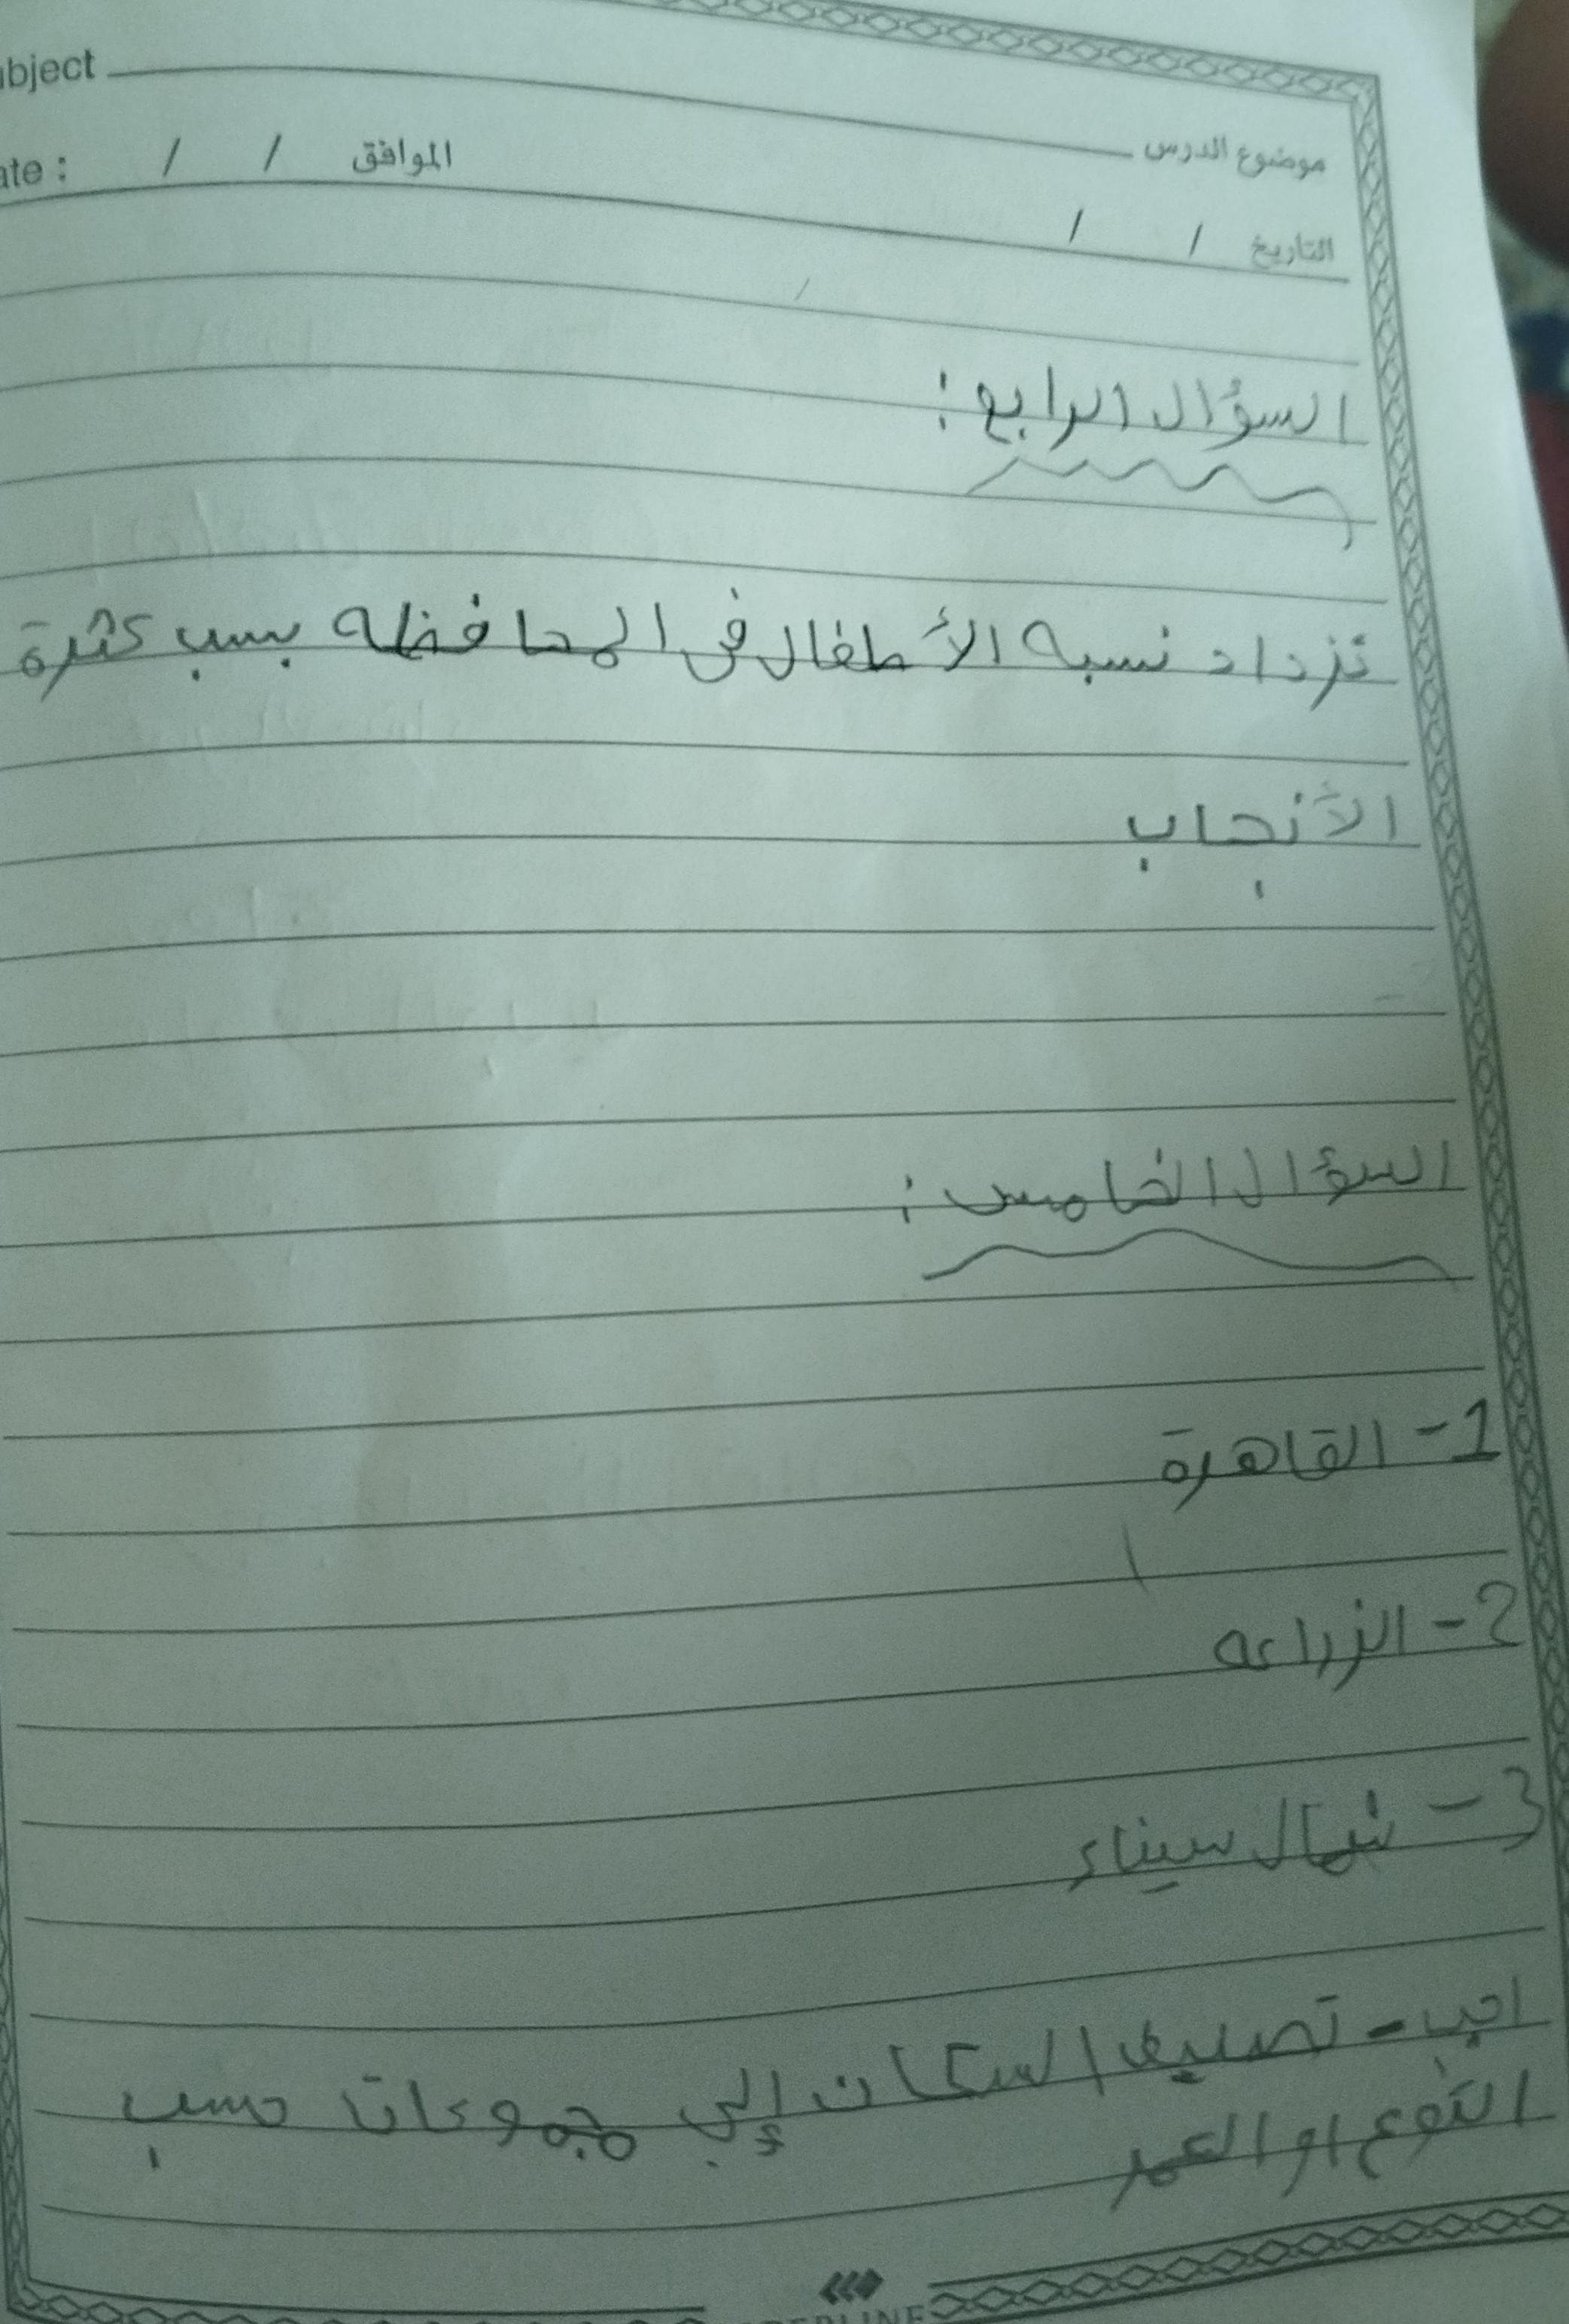 bject
موضوع الدرس
ate : / / الموافق
التاريخ / /
السؤال الرابع :
تزداد نسبه الأطفال فى المحافظه بسب كثرة
الأنجاب
السؤال الخامس :
1- القاهرة
2- الزراعه
3- شمال سيناء
اجب - تصنيف السكان إلي مجموعات حسب
النوع او العمر